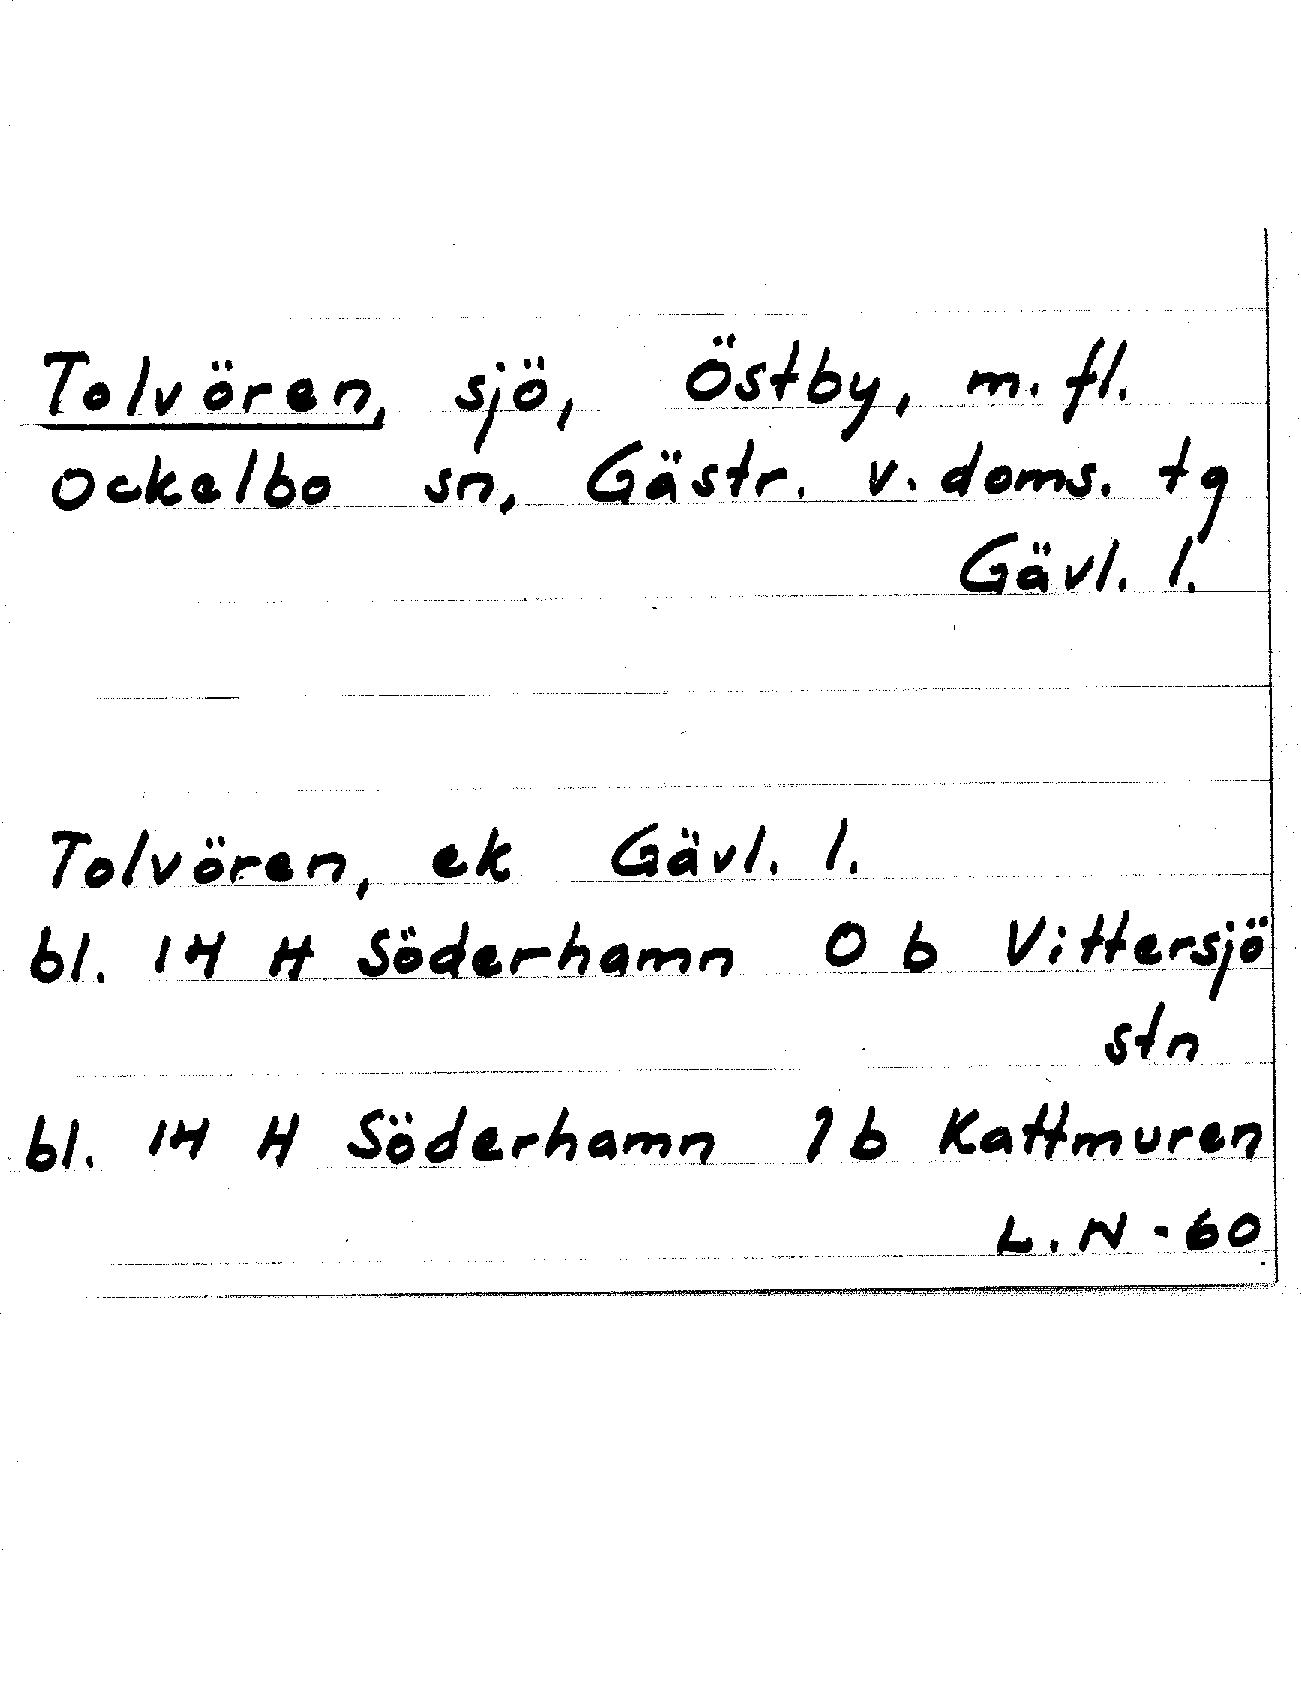 Tolvören, sjö, Östby, m. fl.
Ockelbo sn, Gästr. v. doms. tg
Gävl. l.
Tolvören, ek Gävl. l.
bl. 14 H Söderhamn 0 b Vittersjö
stn
bl. 14 H Söderhamn 1 b Kattmuren
L. N - 60